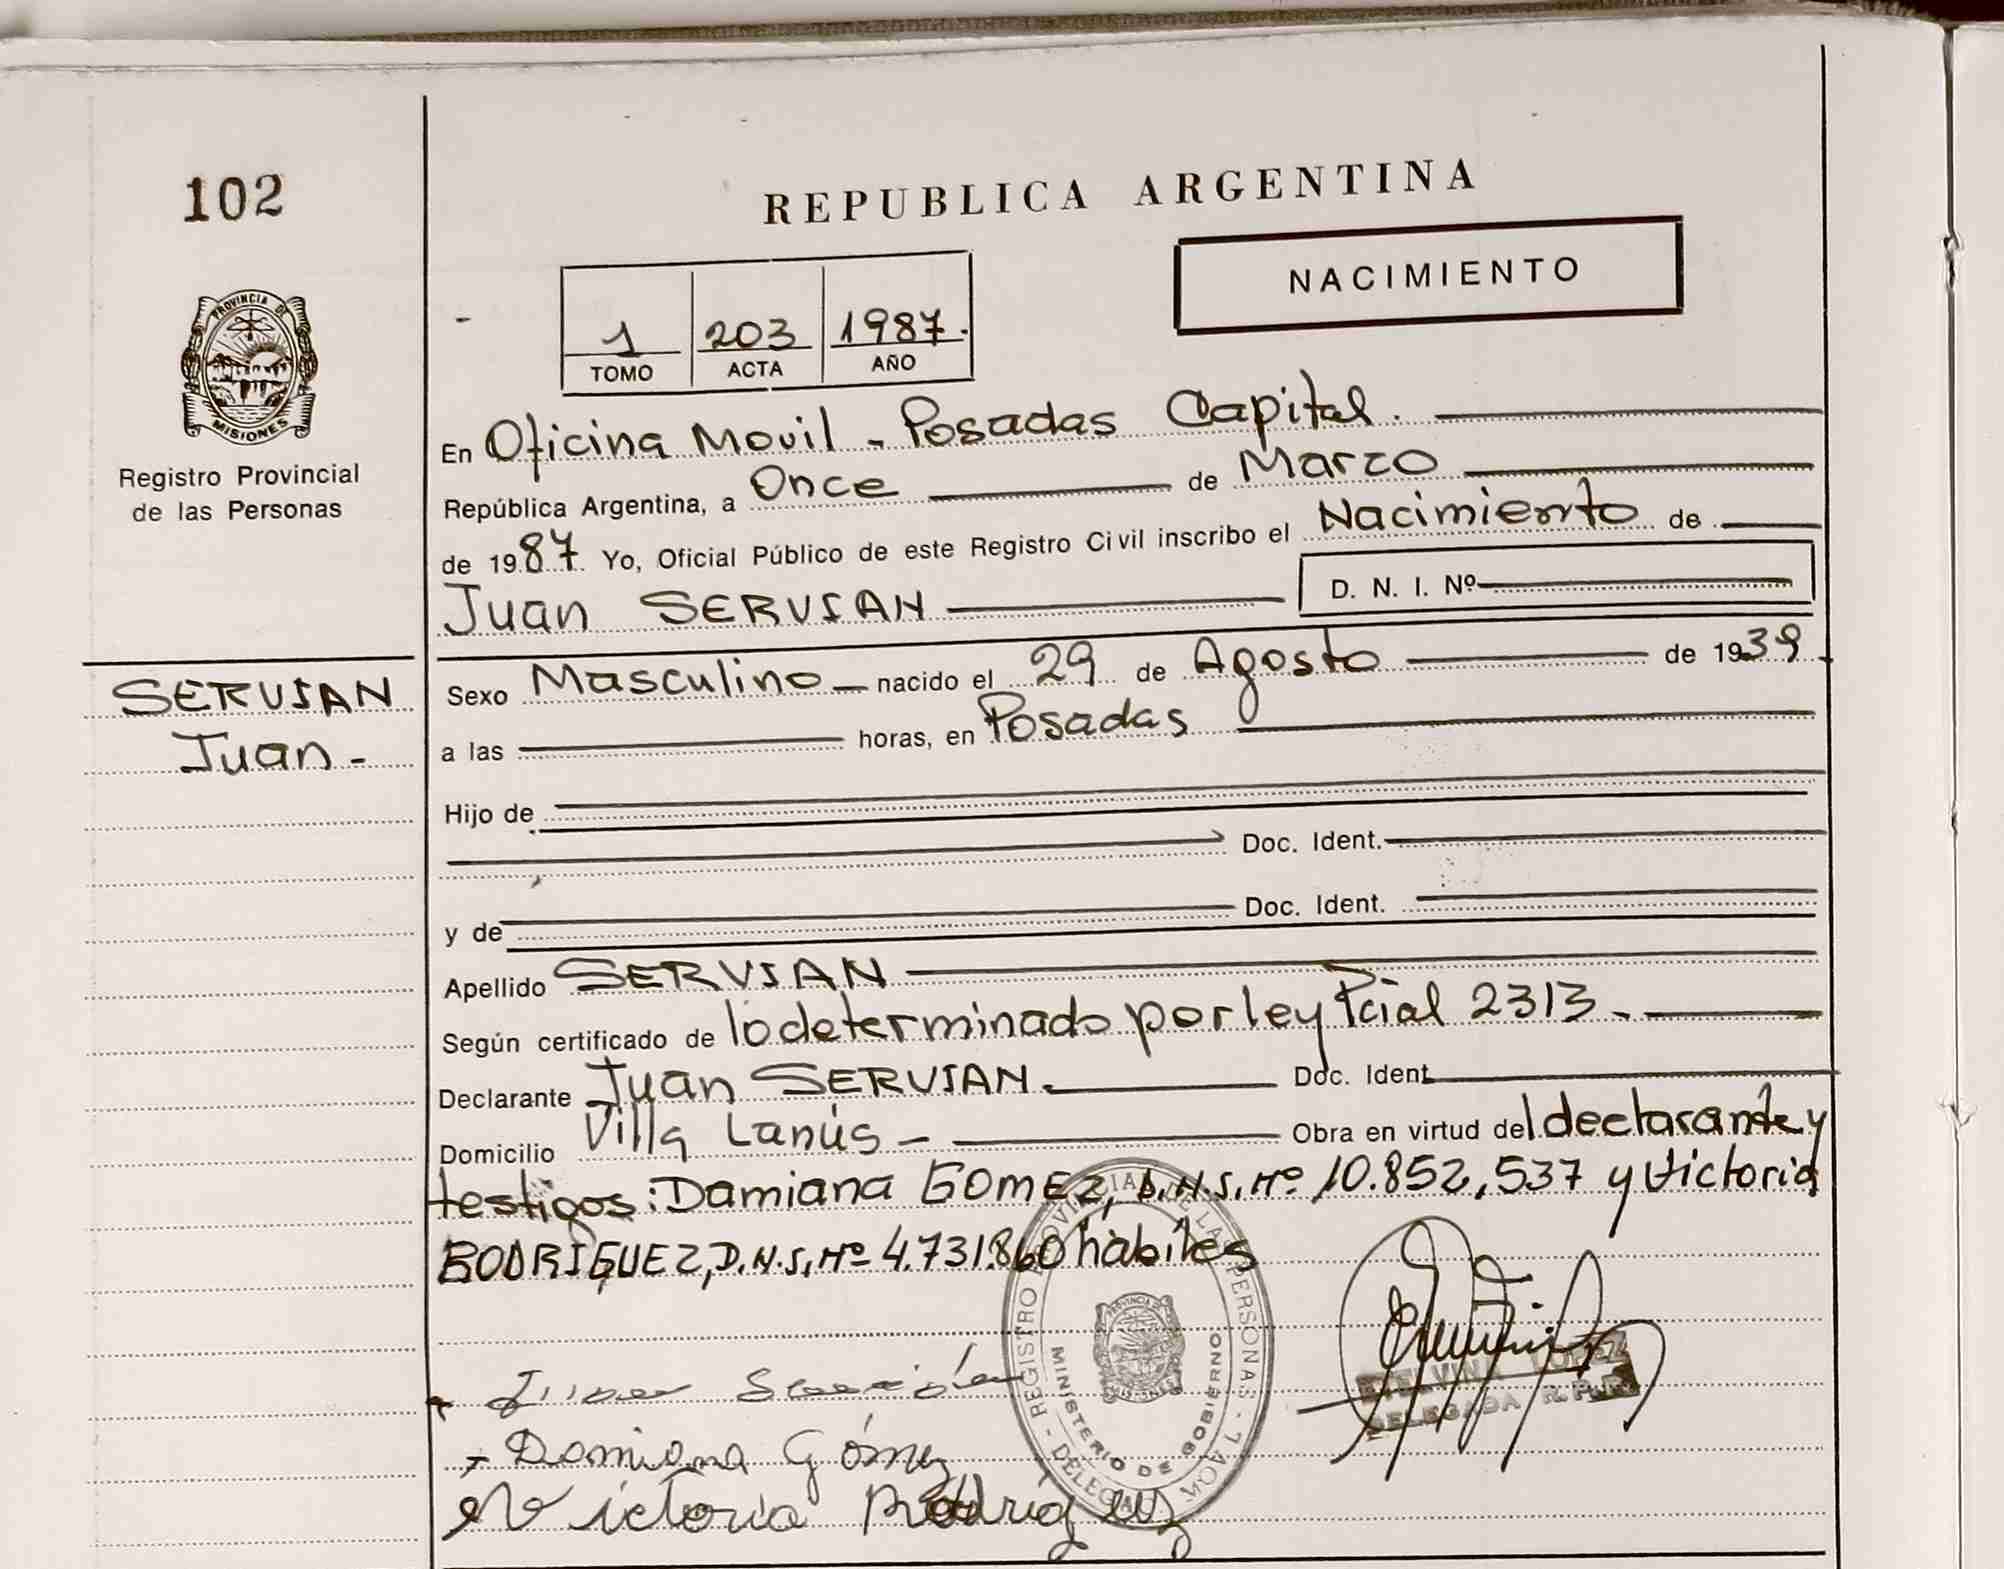 102
REPUBLICA ARGENTINA
NACIMIENTO
1 203 1987.
TOMO ACTA AÑO
PROVINCIA DE
MISIONES
Registro Provincial
de las Personas
En Oficina Movil - Posadas Capital.
República Argentina, a Once de Marzo
de 1987 Yo, Oficial Público de este Registro Civil inscribo el Nacimiento de
Juan SERVIAN D. N. I. Nº
SERVIAN
Juan -
Sexo Masculino nacido el 29 de Agosto de 1939
a las horas, en Posadas
Hijo de
Doc. Ident.
y de Doc. Ident.
Apellido SERVIAN
Según certificado de lo determinado por ley Pcial 2313.
Declarante Juan SERVIAN. Doc. Ident
Domicilio Villa Lanús - Obra en virtud del declarante y
testigos: Damiana GOMEZ, D.N.I. Nº 10.852.537 y Victoria
RODRIGUEZ, D.N.I. Nº 4.731.860 hábiles
REGISTRO PROVINCIAL DE LAS PERSONAS - DELEGAC. MOVIL -
MINISTERIO DE GOBIERNO
LOPEZ
DELEGADA R.P.P.
Damiana Gómez
Victoria Rodríguez